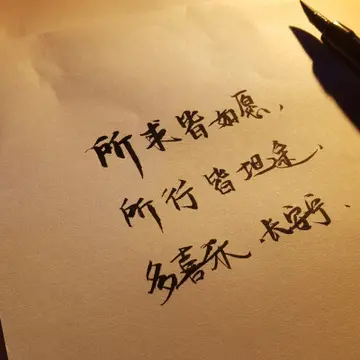 所求皆如愿，
所行皆坦途，
多喜乐、长安宁、